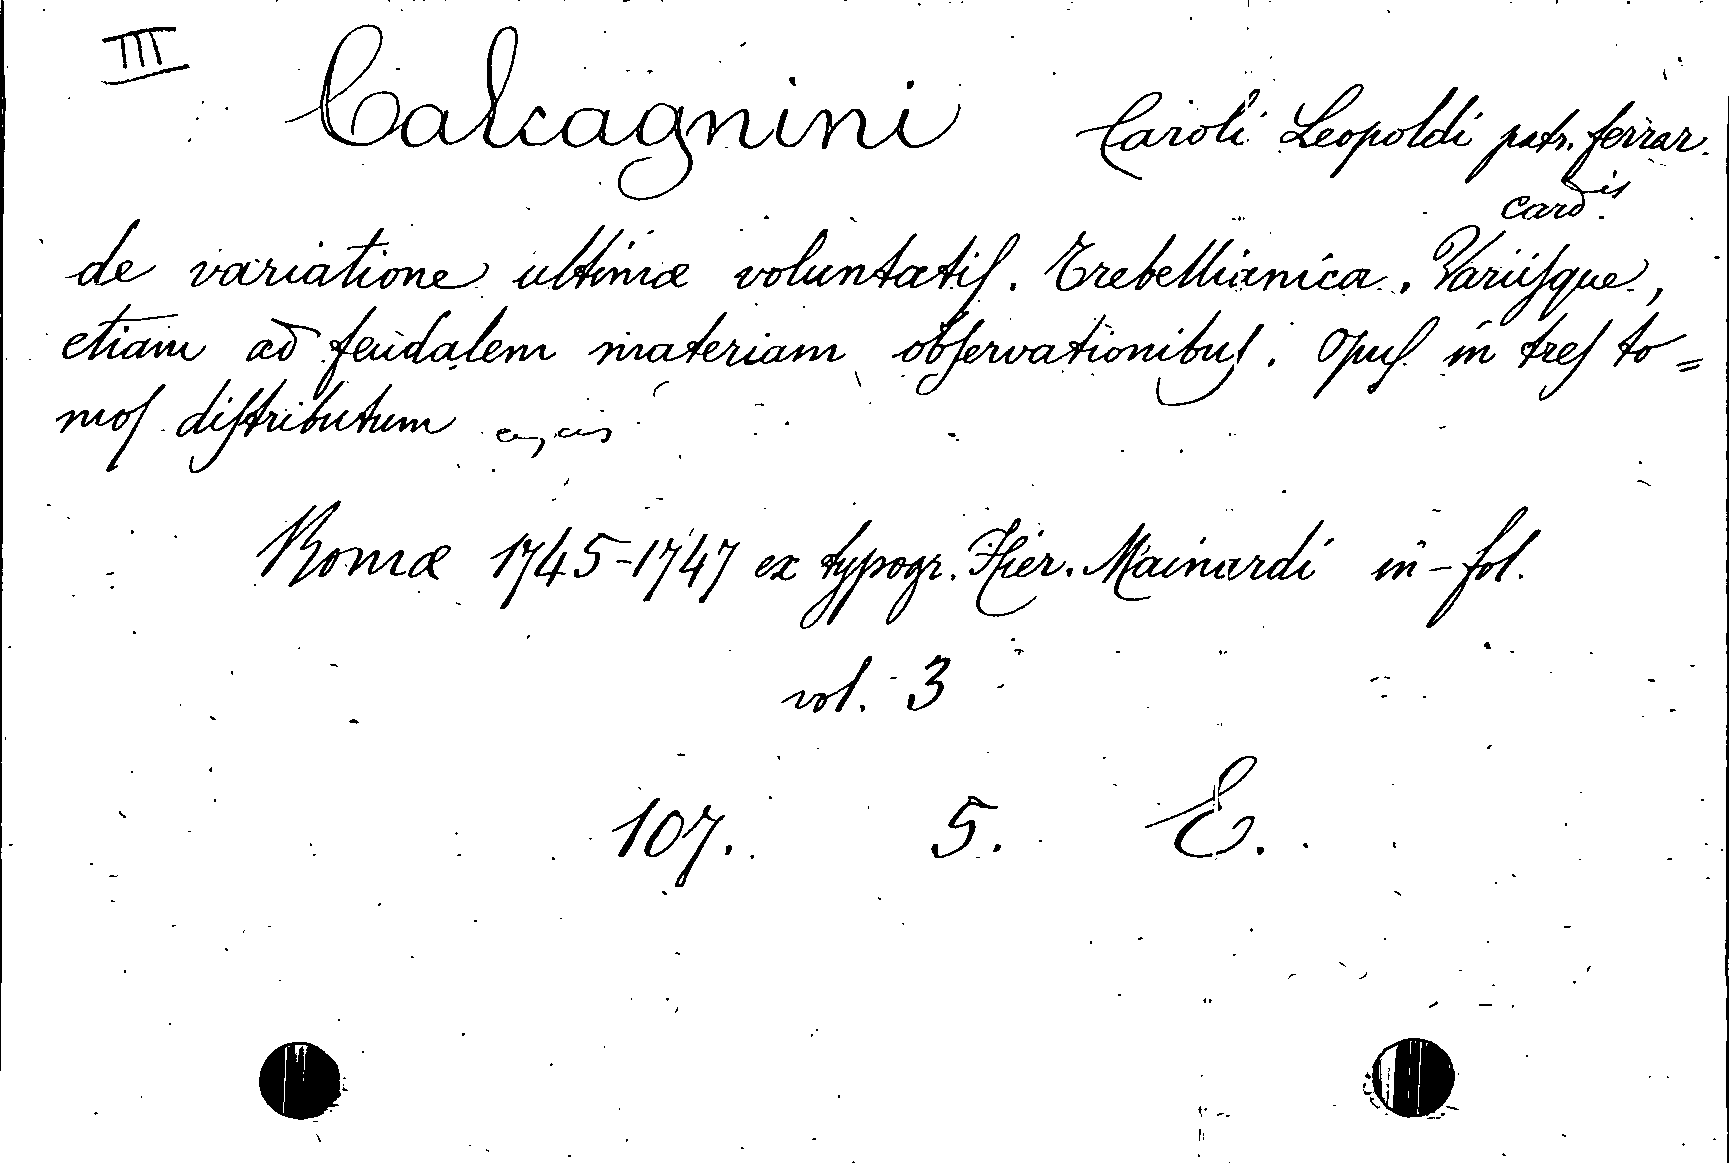 III Calcagnini Caroli Leopoldi patr. ferrar.
card.is
de variatione ultimæ voluntatis. Trebellianica. Variisque,
etiam ad feudalem materiam observationibus. Opus in tres to=
mos distributum
Romæ 1745-1747 ex typogr. Hier. Mainardi in-fol.
vol. 3
107. 5. E.